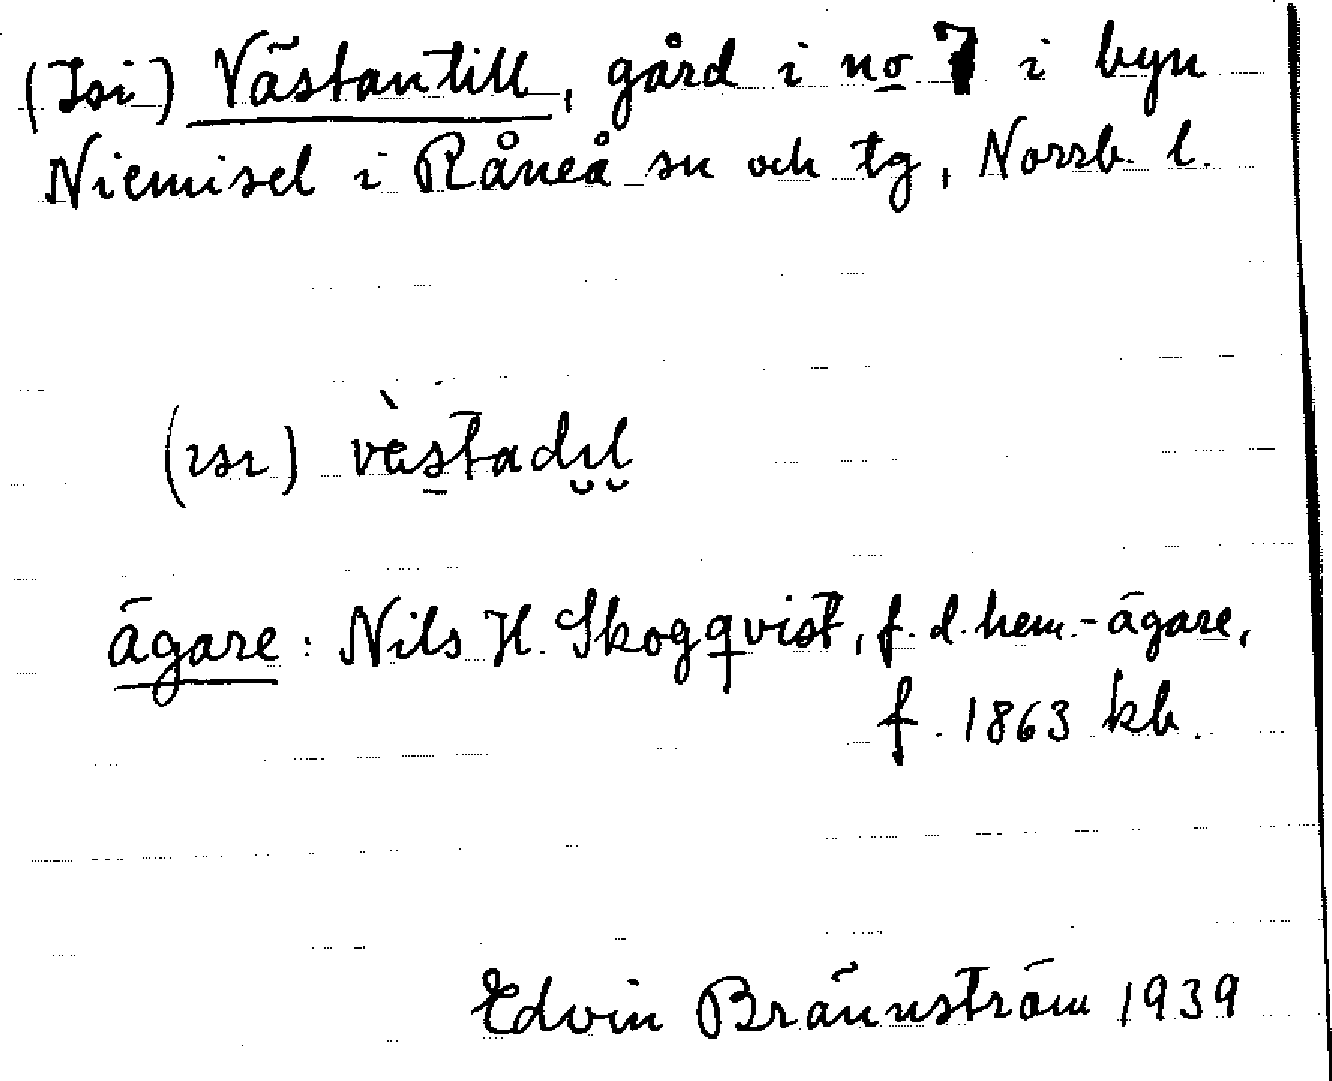 (Isi) Västantill, gård i no 7 i byn
Niemisel i Råneå sn och tg, Norrb. l.
(ısı) vὲstadı̮l̮
ägare: Nils H. Skogqvist, f. d. hem.-ägare,
f. 1863 kb.
Edvin Brännström 1939